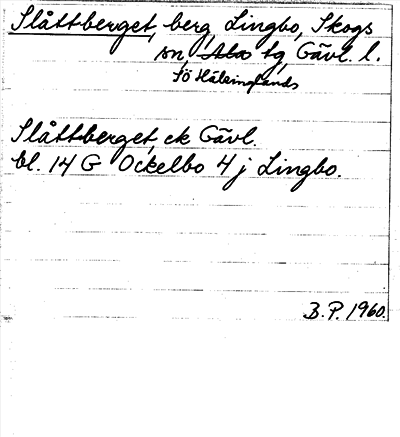 Slåttberget, berg, Lingbo, Skogs
sn, Ala tg, Gävl. l.
Sö Hälsinglands
Slåttberget, ek Gävl.
bl. 14 G Ockelbo 4 j Lingbo.
B.P. 1960.